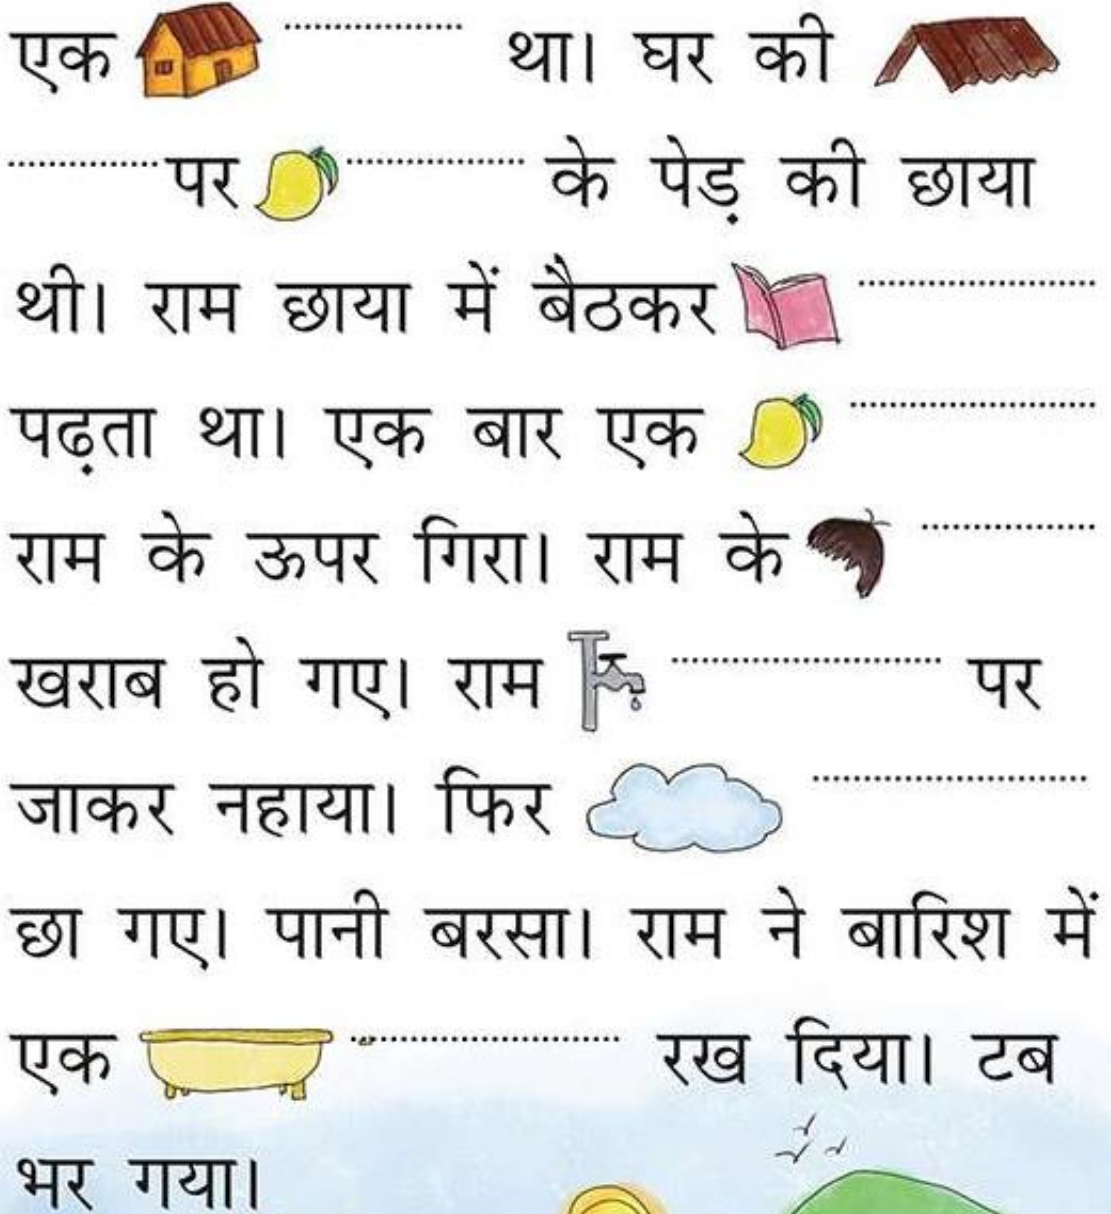 एक .................. था। घर की
............... पर .................. के पेड़ की छाया
थी। राम छाया में बैठकर ........................
पढ़ता था। एक बार एक .........................
राम के ऊपर गिरा। राम के ..................
खराब हो गए। राम ........................... पर
जाकर नहाया। फिर ............................
छा गए। पानी बरसा। राम ने बारिश में
एक ........................... रख दिया। टब
भर गया।